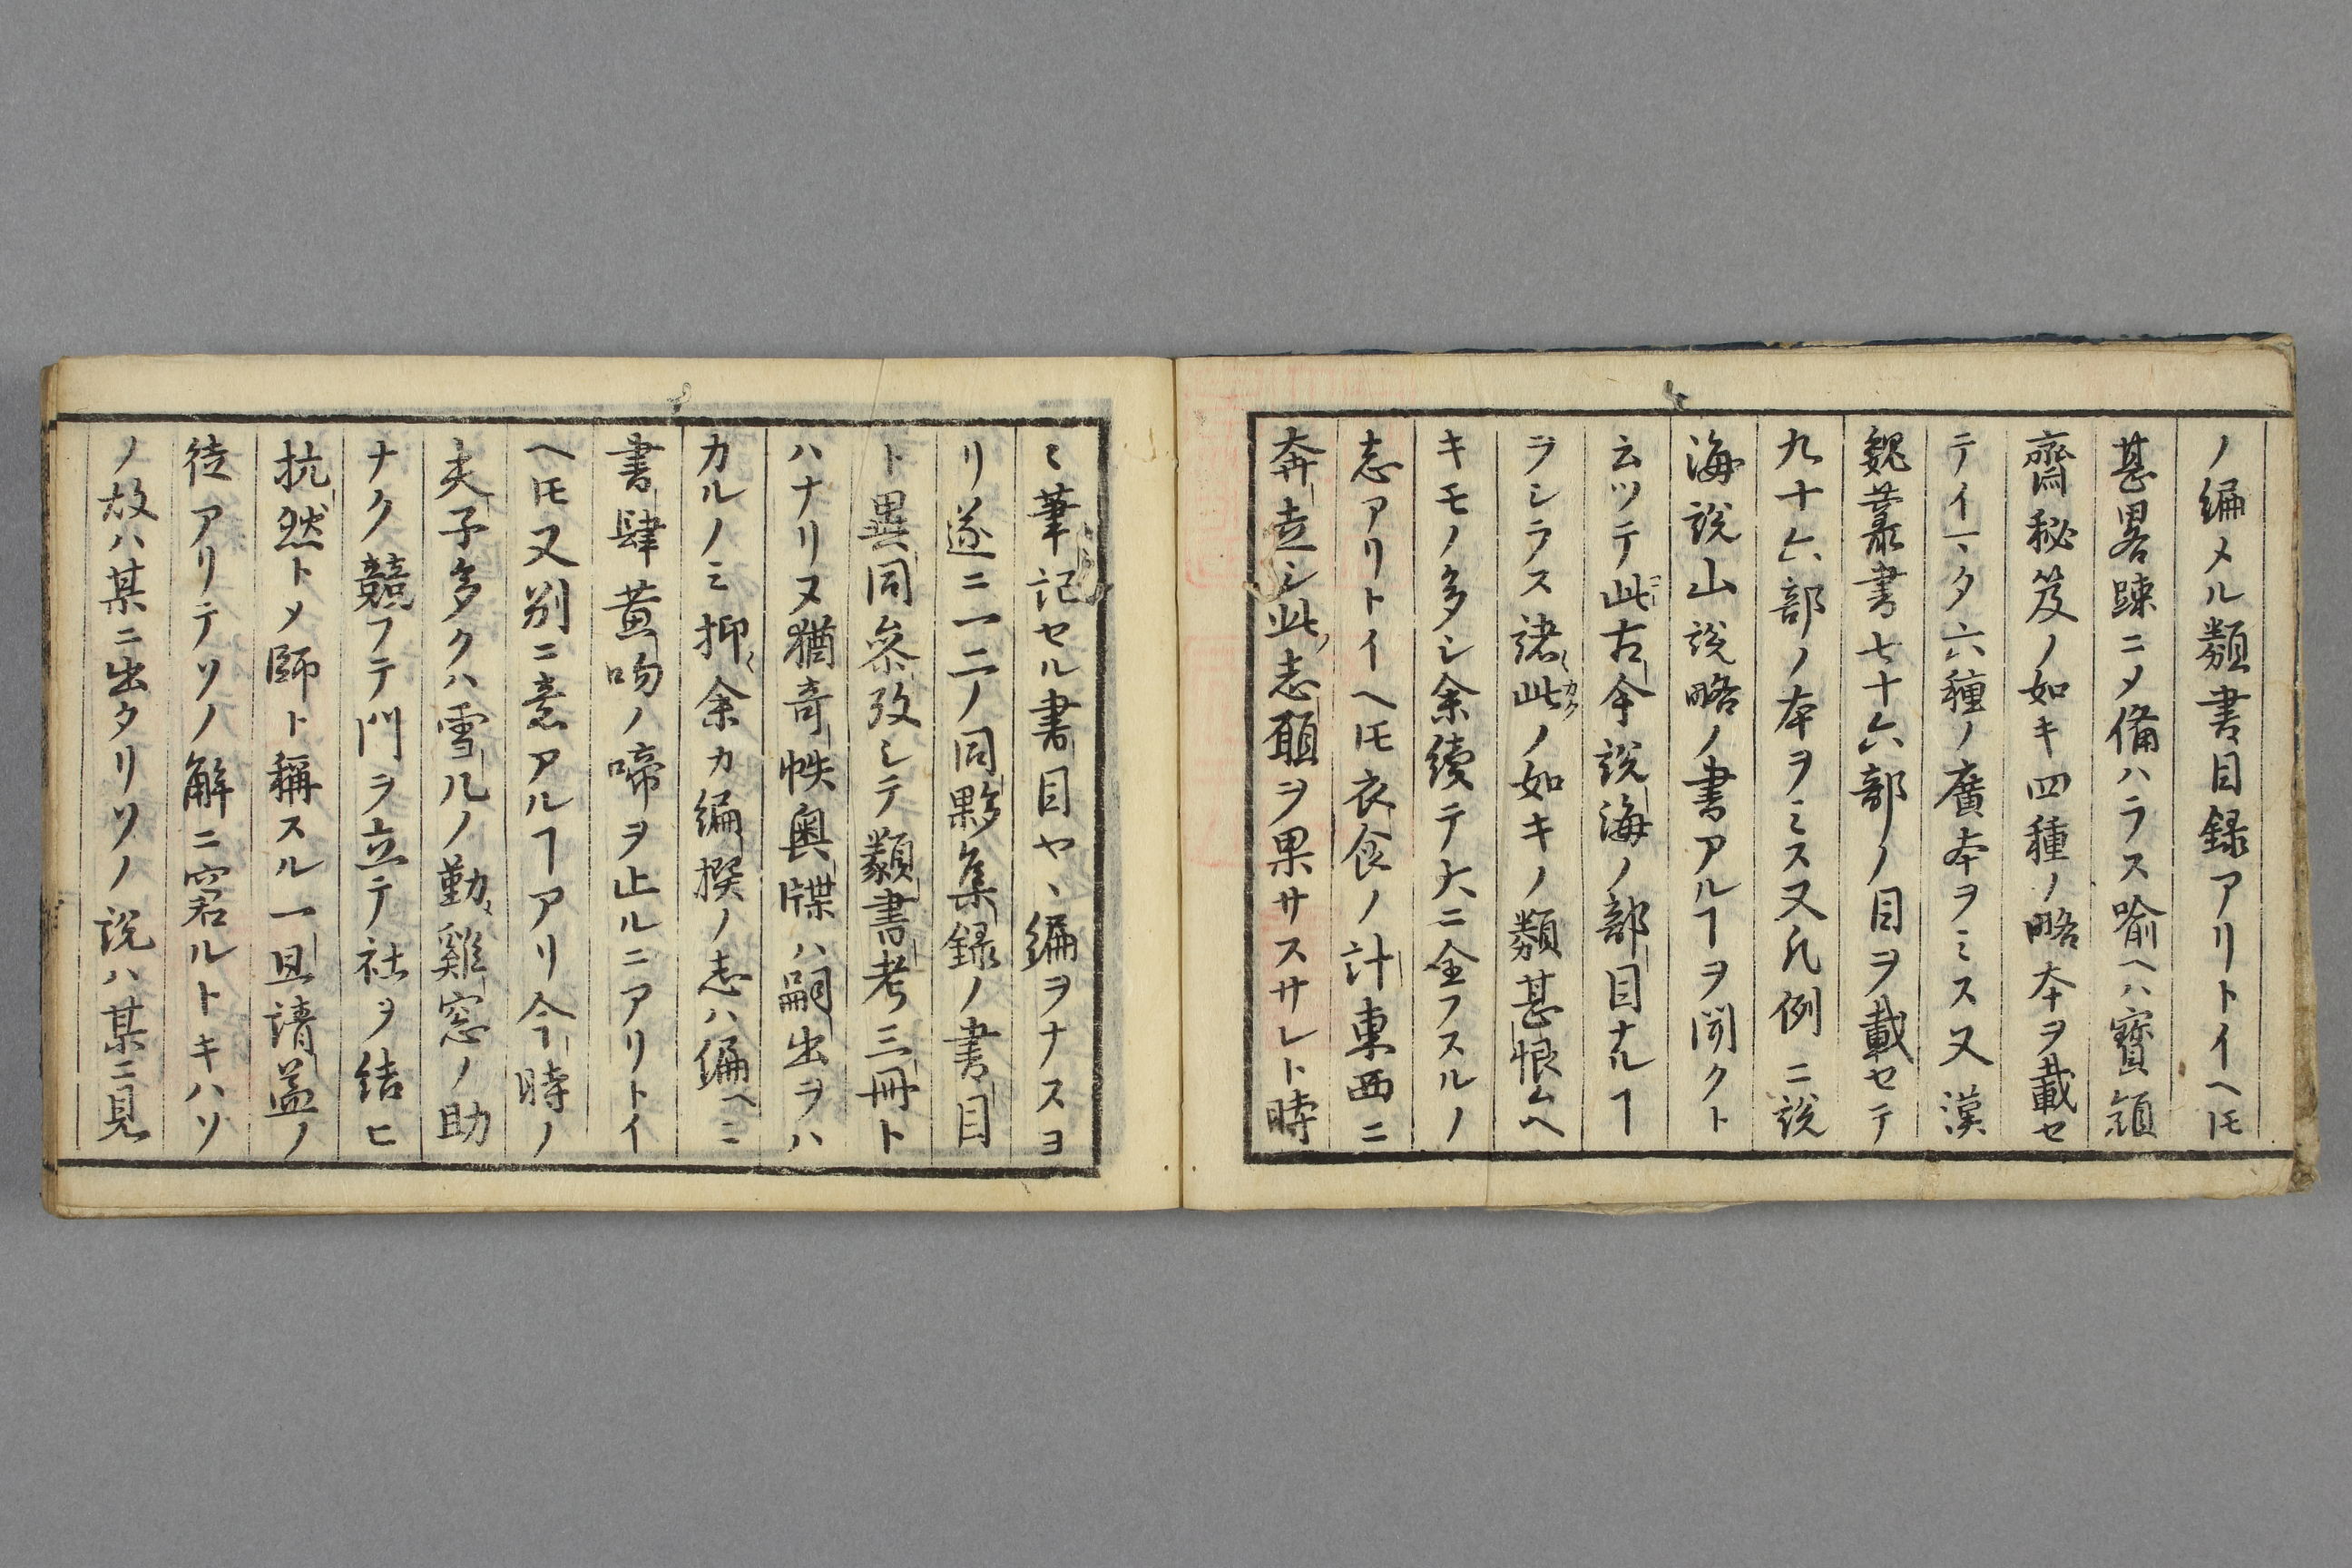 ノ編メル類書目録アリトイヘ𪜈
甚畧踈ニメ備ハラス喩ヘハ寳顔
齋秘笈ノ如キ四種ノ略本ヲ載セ
テイヽタ六種ノ廣本ヲミス又漢
魏叢書七十六部ノ目ヲ載セテ
九十六部ノ本ヲミス又凡例ニ説
海説山説略ノ書アルヿヲ聞クト
云ツテ此古今説海ノ部目ナルヿ
ヲシラス諸此ノ如キノ類甚恨ムヘ
キモノ多シ余續テ大ニ全フスルノ
志アリトイヘ𪜈衣食ノ計東西ニ
奔走シ此志願ヲ果サスサレト時
〻筆記セル書目ヤヽ編ヲナスヨ
リ遂ニ一二ノ同夥集録ノ書目
ト異同叅攷シテ類書考三冊ト
ハナリヌ猶奇帙奥牒ハ嗣出ヲハ
カルノミ抑余カ編撰ノ志ハ編ヘニ
書肆黄吻ノ啼ヲ止ルニアリトイ
ヘ𪜈又別ニ意アルヿアリ今時ノ
夫子多クハ雪几ノ勤雞窓ノ助
ナク競フテ門ヲ立テ社ヲ結ヒ
抗然トメ師ト稱スル一旦請益ノ
徒アリテソノ解ニ窘ルトキハソ
ノ故ハ某ニ出タリソノ説ハ某ニ見